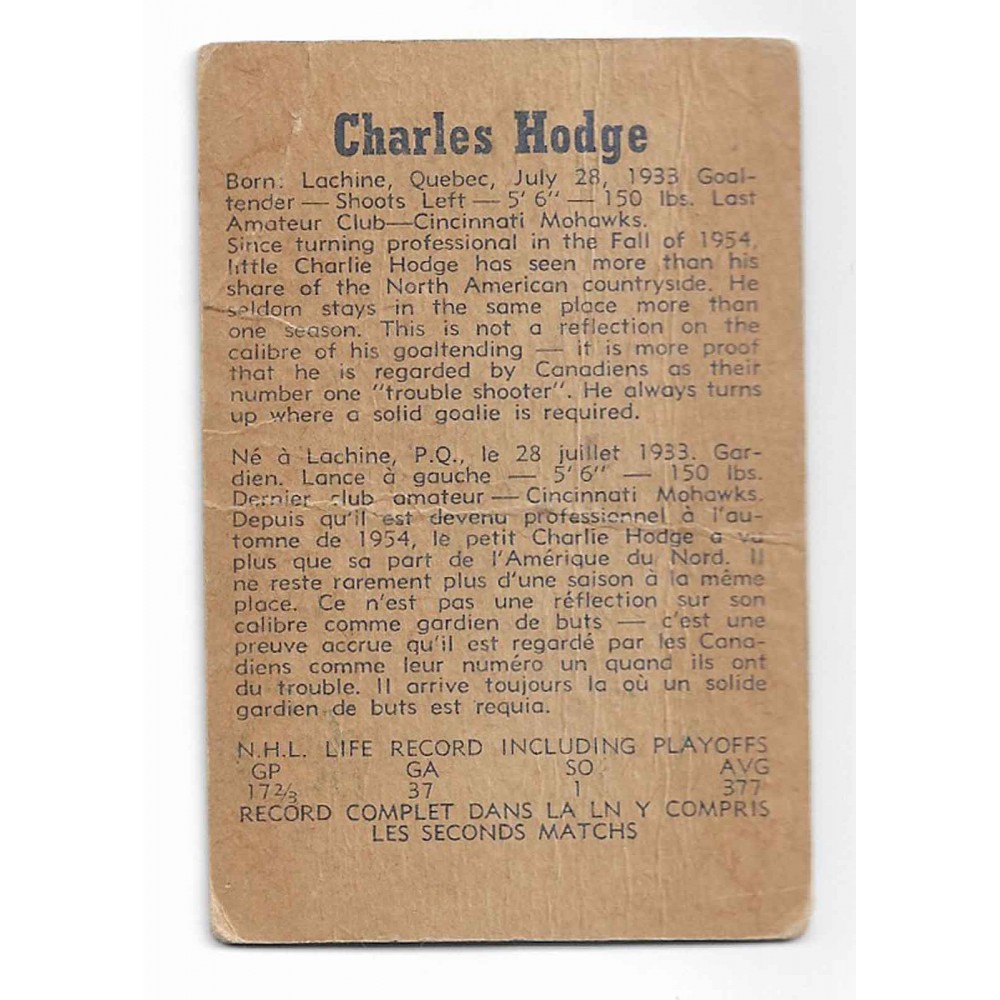 Charles Hodge
Born: Lachine, Quebec, July 28, 1933 Goal-
tender — Shoots Left — 5' 6" — 150 lbs. Last
Amateur Club—Cincinnati Mohawks.
Since turning professional in the Fall of 1954,
little Charlie Hodge has seen more than his
share of the North American countryside. He
seldom stays in the same place more than
one season. This is not a reflection on the
calibre of his goaltending — it is more proof
that he is regarded by Canadiens as their
number one "trouble shooter". He always turns
up where a solid goalie is required.
Né à Lachine, P.Q., le 28 juillet 1933. Gar-
dien. Lance à gauche — 5' 6" — 150 lbs.
Dernier club amateur — Cincinnati Mohawks.
Depuis qu'il est devenu professionnel à l'au-
tomne de 1954, le petit Charlie Hodge a vu
plus que sa part de l'Amérique du Nord. Il
ne reste rarement plus d'une saison à la même
place. Ce n'est pas une réflection sur son
calibre comme gardien de buts — c'est une
preuve accrue qu'il est regardé par les Cana-
diens comme leur numéro un quand ils ont
du trouble. Il arrive toujours la où un solide
gardien de buts est requia.
N.H.L. LIFE RECORD INCLUDING PLAYOFFS
GP GA SO AVG
17⅔ 37 1 377
RECORD COMPLET DANS LA LN Y COMPRIS
LES SECONDS MATCHS